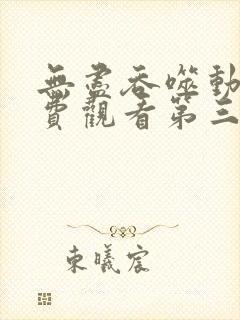 無盡吞噬動
費觀看第三
東曦宸